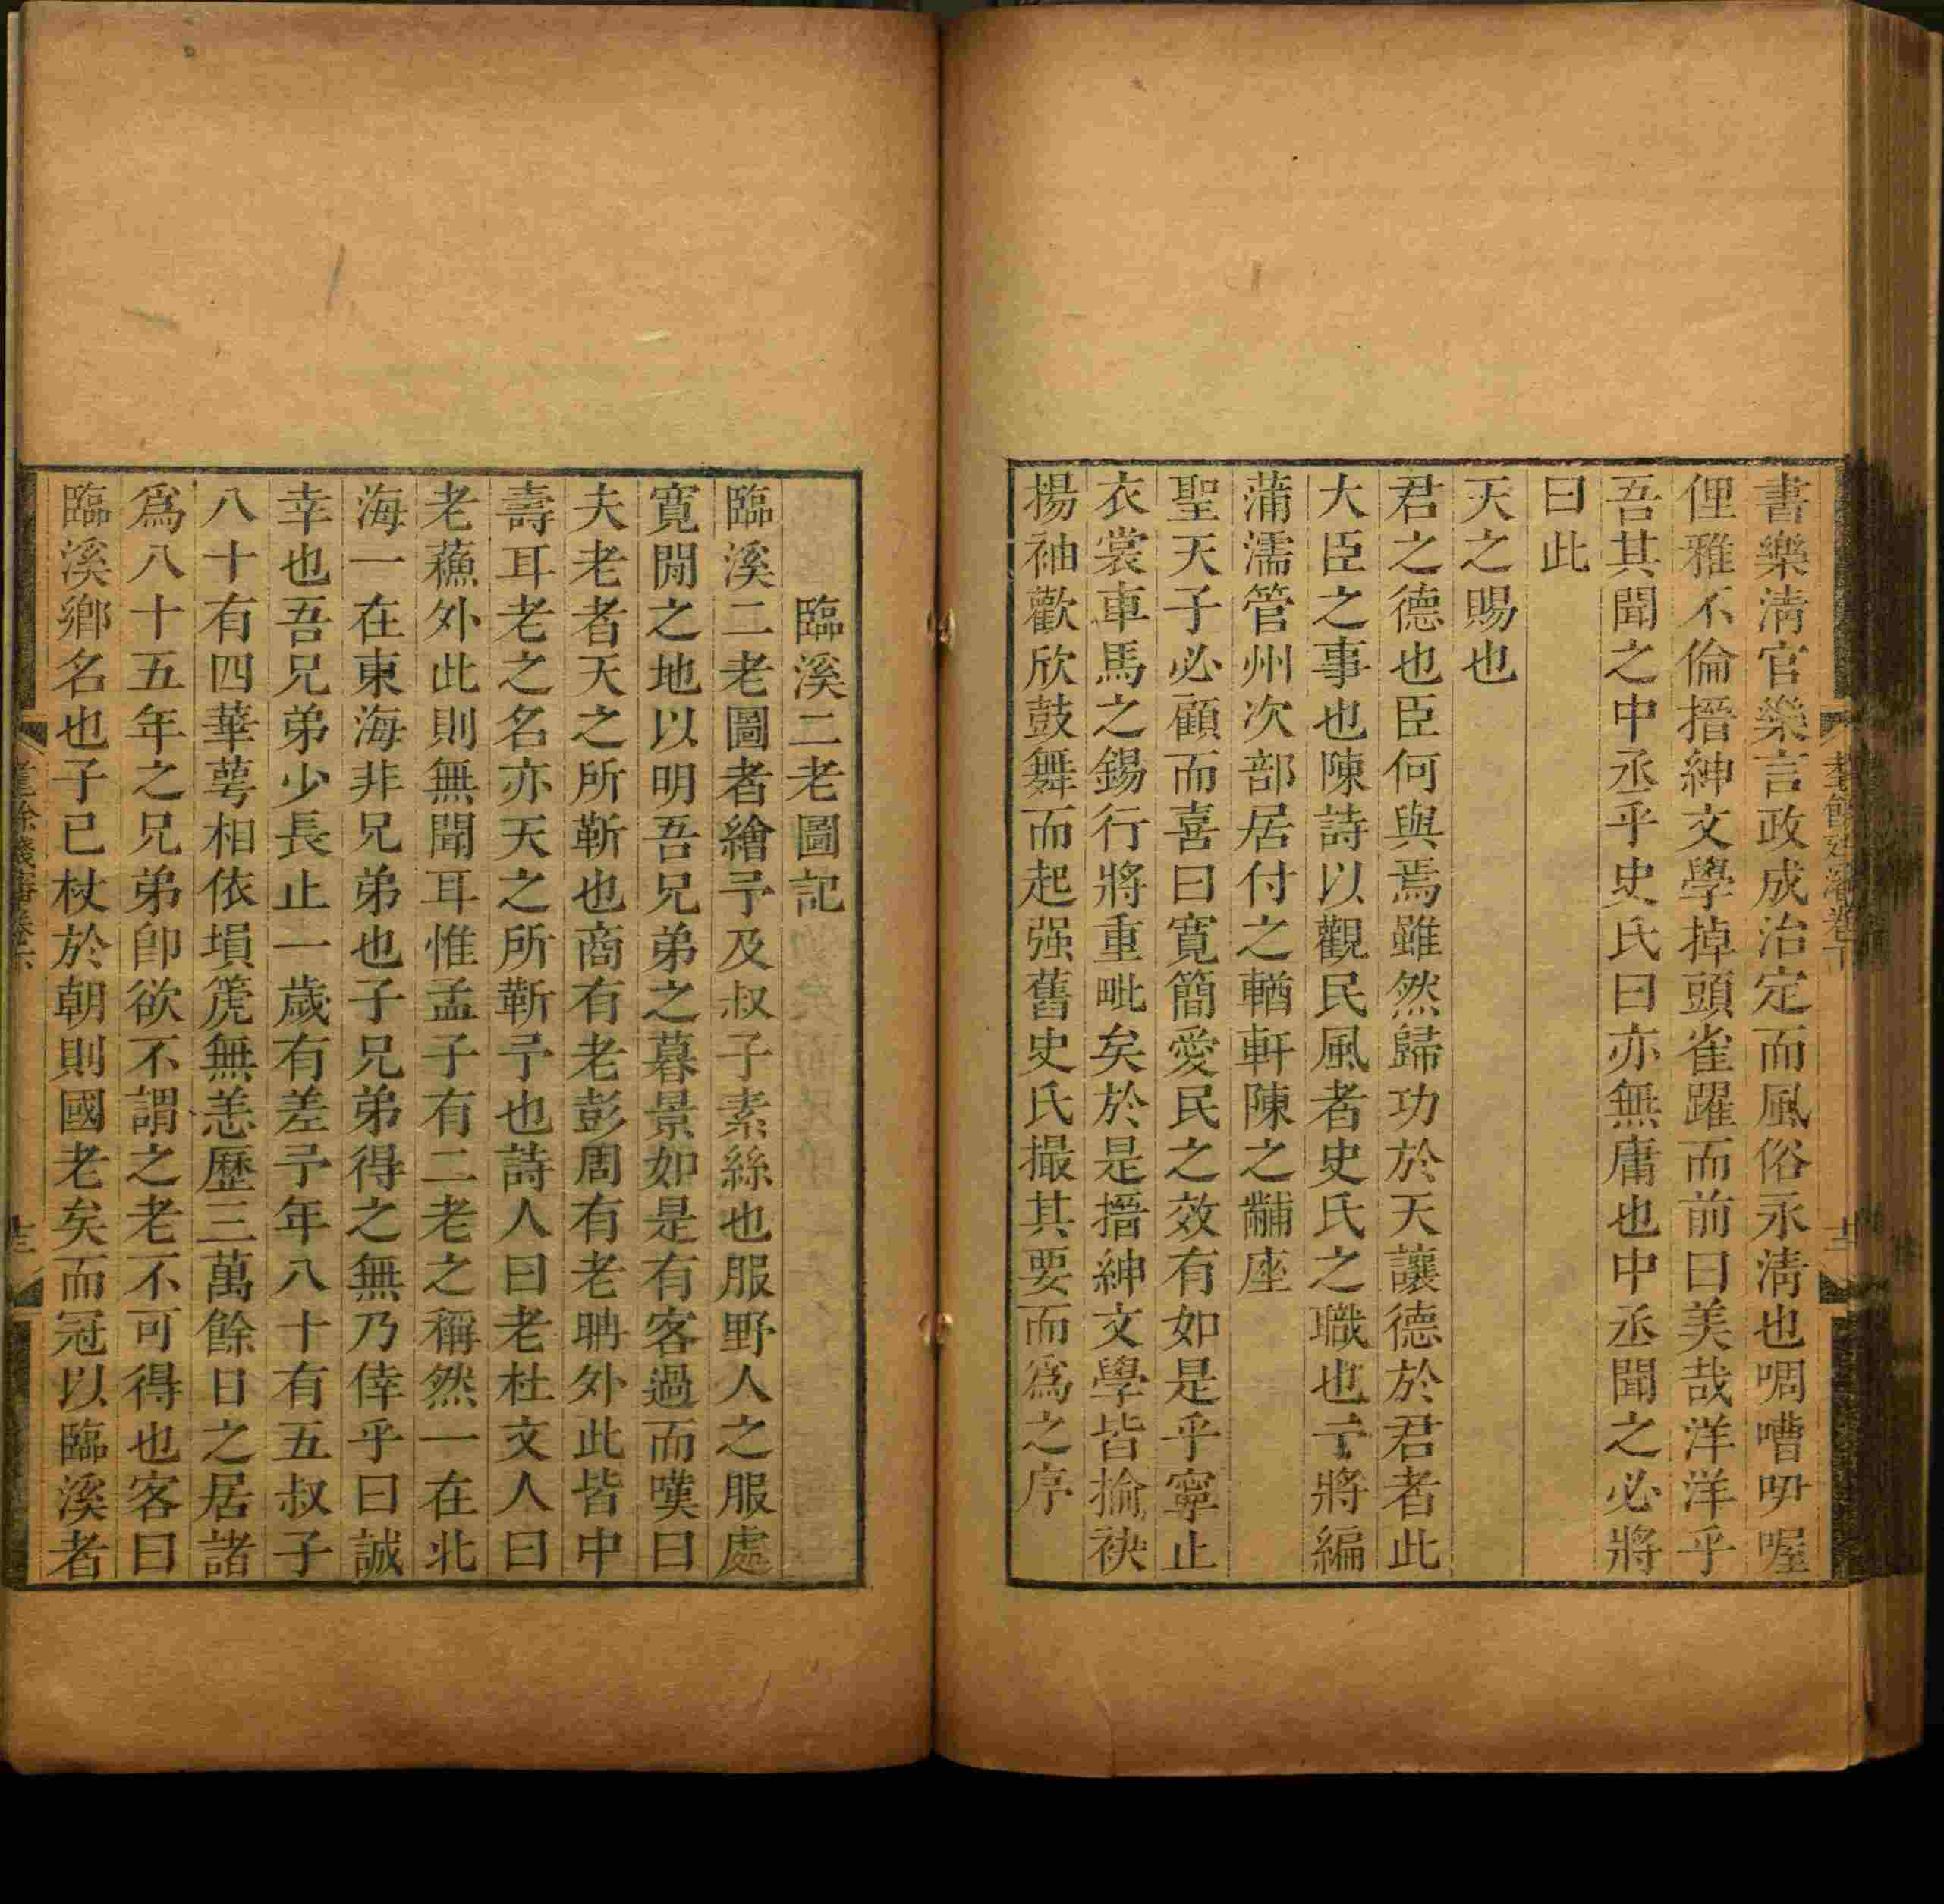 書樂淸官樂言政成治定而風俗永淸也啁嘈吚喔
俚雅不倫搢紳文學掉頭雀躍而前曰美哉洋洋乎
吾其聞之中丞乎史氏曰亦無庸也中丞聞之必將
曰此
天之賜也
君之德也臣何與焉雖然歸功於天讓德於君者此
大臣之事也陳詩以觀民風者史氏之職也予將編
蒲濡管州次部居付之輶軒陳之黼座
聖天子必顧而喜曰寛簡愛民之效有如是乎寧止
衣裳車馬之錫行將重毗矣於是搢紳文學皆揄袂
揚袖歡欣鼓舞而起强舊史氏撮其要而爲之序
臨溪二老圖記
臨溪二老圖者繪予及叔子素絲也服野人之服處
寛閒之地以明吾兄弟之暮景如是有客過而嘆曰
夫老者天之所靳也商有老彭周有老聃外此皆中
壽耳老之名亦天之所靳予也詩人曰老杜文人曰
老蘓外此則無聞耳惟孟子有二老之稱然一在北
海一在東海非兄弟也子兄弟得之無乃倖乎曰誠
幸也吾兄弟少長止一歲有差予年八十有五叔子
八十有四華蕚相依塤箎無恙歷三萬餘日之居諸
爲八十五年之兄弟卽欲不謂之老不可得也客曰
臨溪鄉名也子已杖於朝則國老矣而冠以臨溪者